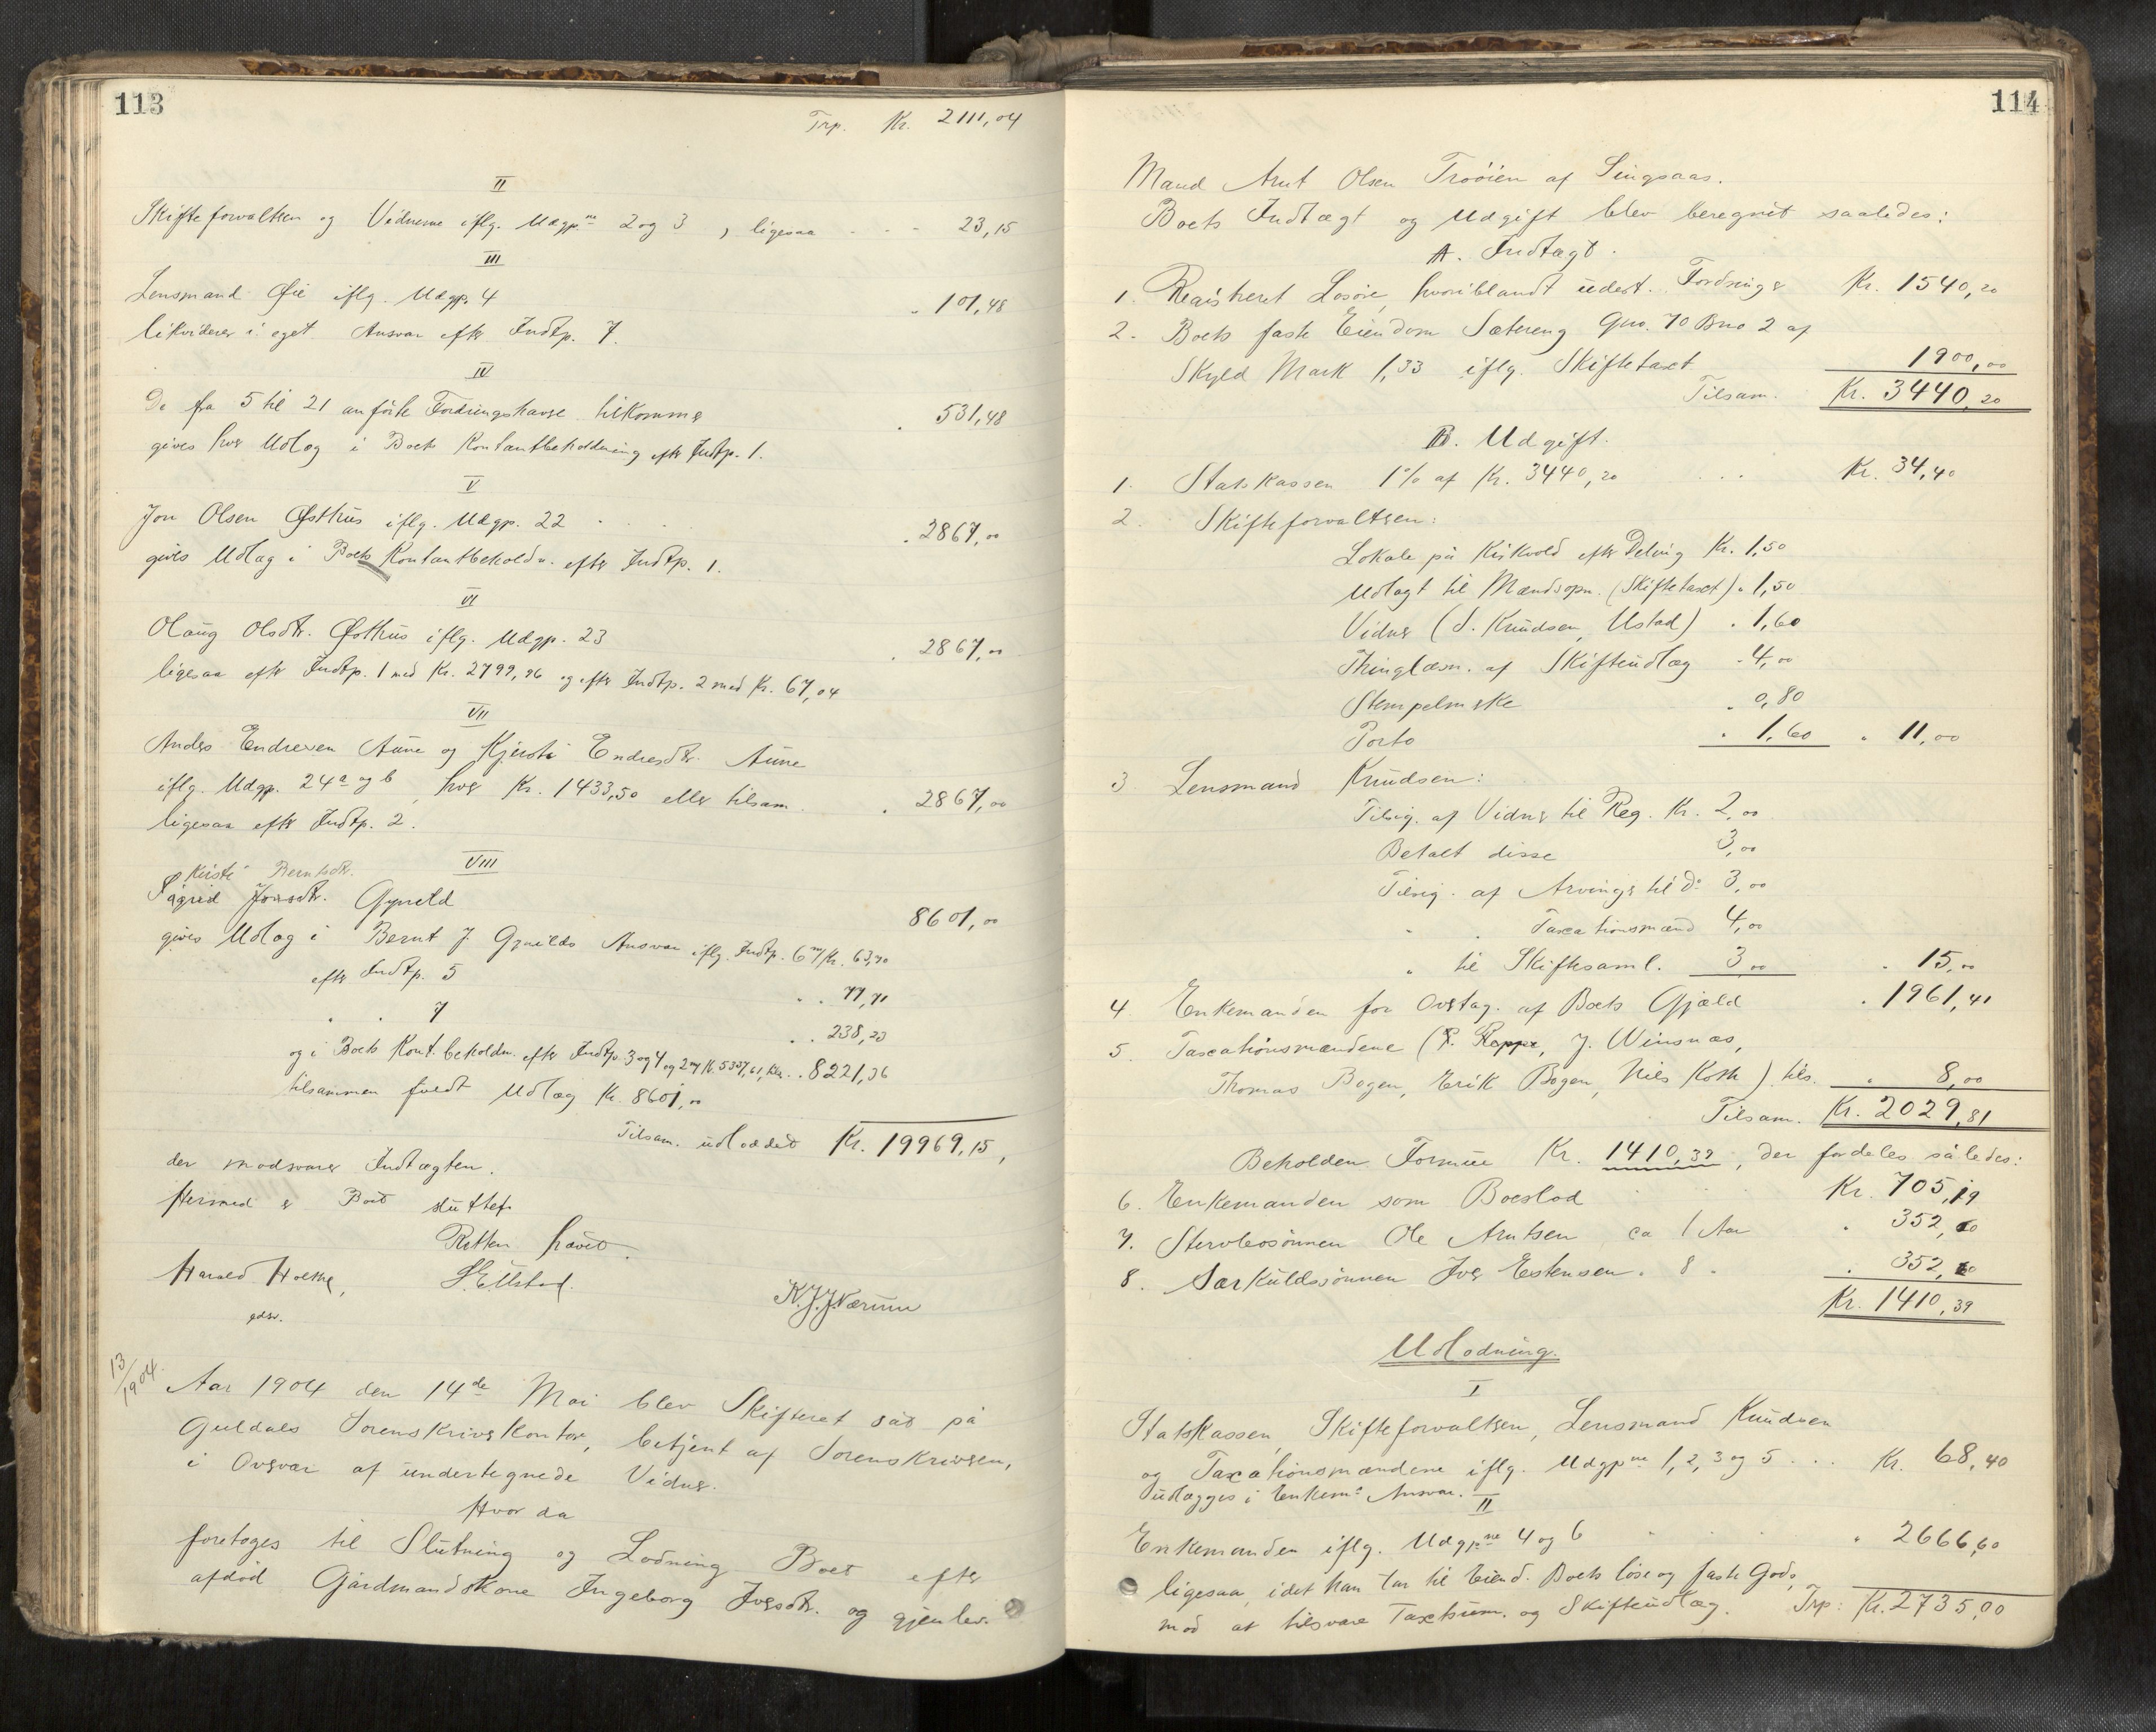 113
Trp. Kr. 2111,04
II
Skifteforvalteren og Vidnerne iflg. Udgp.ne 2 og 3, ligesaa . . . 23,15
III
Lensmand Øie iflg. Udgp. 4 . 101,48
likviderer i eget Ansvar efter Indtp. 7.
IV
De fra 5 til 21 anførte Fordringshavere tilkommer . 531,48
gives hver Udlæg i Boets Kontantbeholdning efter Indtp. 1.
V
Jon Olsen Østhus iflg. Udgp. 22 . . . 2867,00
gives Udlæg i Boets Kontantbeholdn. efter Indtp. 1.
VI
Olaug Olsdtr. Østhus iflg. Udgp. 23 . 2867,00
ligesaa efter Indtp. 1 med Kr. 2799,96 og efter Indtp. 2 med Kr. 67,04
VII
Anders Endresen Aune og Kjersti Endresdtr. Aune
iflg. Udgp. 24a og b, hver Kr. 1433,50 eller tilsam. . 2867,00
ligesaa efter Indtp. 2.
VIII
Kirsti Berntsdtr.
Sigrid Jonsdtr. Gynild 8601,00
gives Udlæg i Bernt J. Gynilds Ansvar iflg. Indtp. 6 m/Kr. 63,70
efter Indtp. 5 . . 77,71
" " 7 . . 238,23
og i Boets Kont.beholdn. efter Indtp. 3 og 4 og 2 m/K. 5337,61, . . 8221,36
tilsammen fuldt Udlæg Kr. 8601,00
Tilsam. udloddet Kr. 19969,15,
der modsvarer Indtægten.
Hermed er Boet sluttet.
Retten hævet.
Harald Holthe, S. Ustad. K.J.J. Nærum
edsv.
13/1904.
Aar 1904 den 14de Mai blev Skifteret sat på
Guldals Sorenskriverkontor, betjent af Sorenskriveren,
i Overvær af undertegnede Vidner.
Hvor da
foretoges til Slutning og Lodning Boet efter
afdød Gårdmandskone Ingeborg Iversdtr. og gjenlev.
114
Mand Arnt Olsen Trøøien af Singsaas.
Boets Indtægt og Udgift blev beregnet saaledes:
A. Indtægt.
1. Registreret Løsøre, hvoriblandt udest. Fordringer Kr. 1540,20
2. Boets faste Eiendom Sætereng Gno. 70 Bno 2 af
Skyld Mark 1,33 iflg. Skiftetaxt 1900,00
Tilsam. Kr. 3440,20
B. Udgift.
1. Statskassen 1% af Kr. 3440,20 . . . Kr. 34,40
2. Skifteforvalteren:
Lokale på Kirkvold efter Deling Kr. 1,50
Udlagt til Mændsopn. (Skiftetaxt) " 1,50
Vidner (S. Knudsen, Ustad) " 1,60
Thinglæsn. af Skifteudlæg " 4,00
Stempelmærke " 0,80
Porto " 1,60 " 11,00
3 Lensmand Knudsen:
Tilsig. af Vidner til Reg. Kr. 2,00
Betalt disse 3,00
Tilsig. af Arvinger til do 3,00
" " Taxationsmænd 4,00
" til Skiftesaml. 3,00 " 15,00
4. Enkemanden for Overtag. af Boets Gjæld " 1961,41
5. Taxationsmændene (P. Reppe, J. Winsnæs,
Thomas Bogen, Erik Bogen, Nils Koth) tils. " 8,00
Tilsam. Kr. 2029,81
Beholden Formue Kr. 1410,39, der fordeles således:
6. Enkemanden som Boeslod . . . Kr. 705,19
7. Stervbosønnen Ole Arntsen ca 1 Aar " 352,60
8. Særkuldssønnen Iver Estensen " 8 " " 352,60
Kr. 1410,39
Udlodning.
I
Statskassen, Skifteforvalteren, Lensmand Knudsen
og Taxationsmændene iflg. Udgp.ne 1, 2, 3 og 5 . . . Kr. 68,40
udlægges i Enkem.s Ansvar.
II
Enkemanden iflg. Udgp.ne 4 og 6 . . . " 2666,60
ligesaa, idet han tar til Eiend. Boets løse og faste Gods,
mod at tilsvare Taxtsum. og Skifteudlæg. Trp: Kr. 2735,00